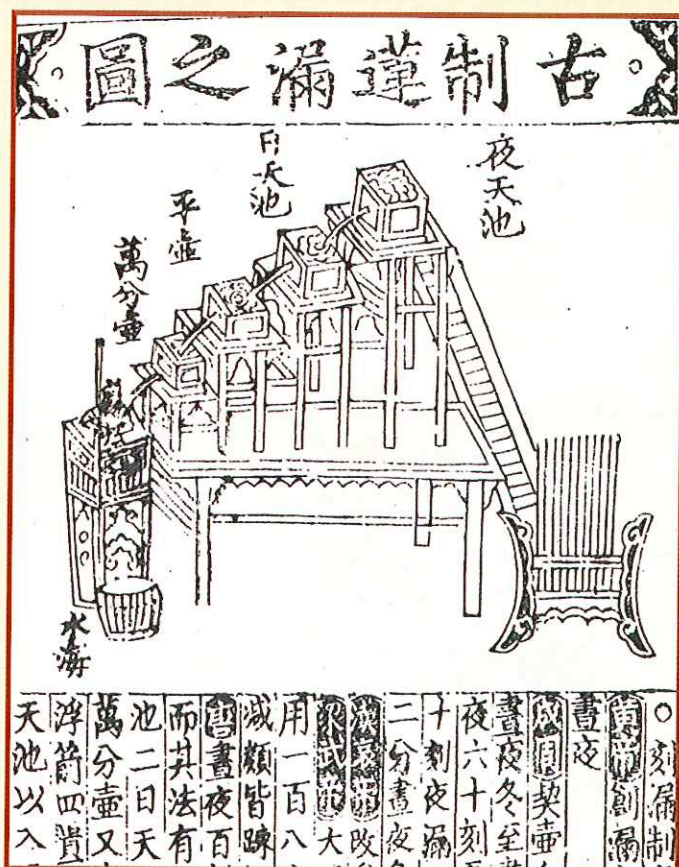 古制蓮漏之圖
夜天池
日天池
平壺
萬分壺
水海
○刻漏制
黃帝創漏
晝夜
成周契壺
晝夜冬至
夜六十刻
十刻夜漏
二分晝夜
漢哀帝改
梁武帝大
用一百八
減頗皆踈
唐晝夜百
而其法有
池二日天
萬分壺又
浮箭四貫
天池以入